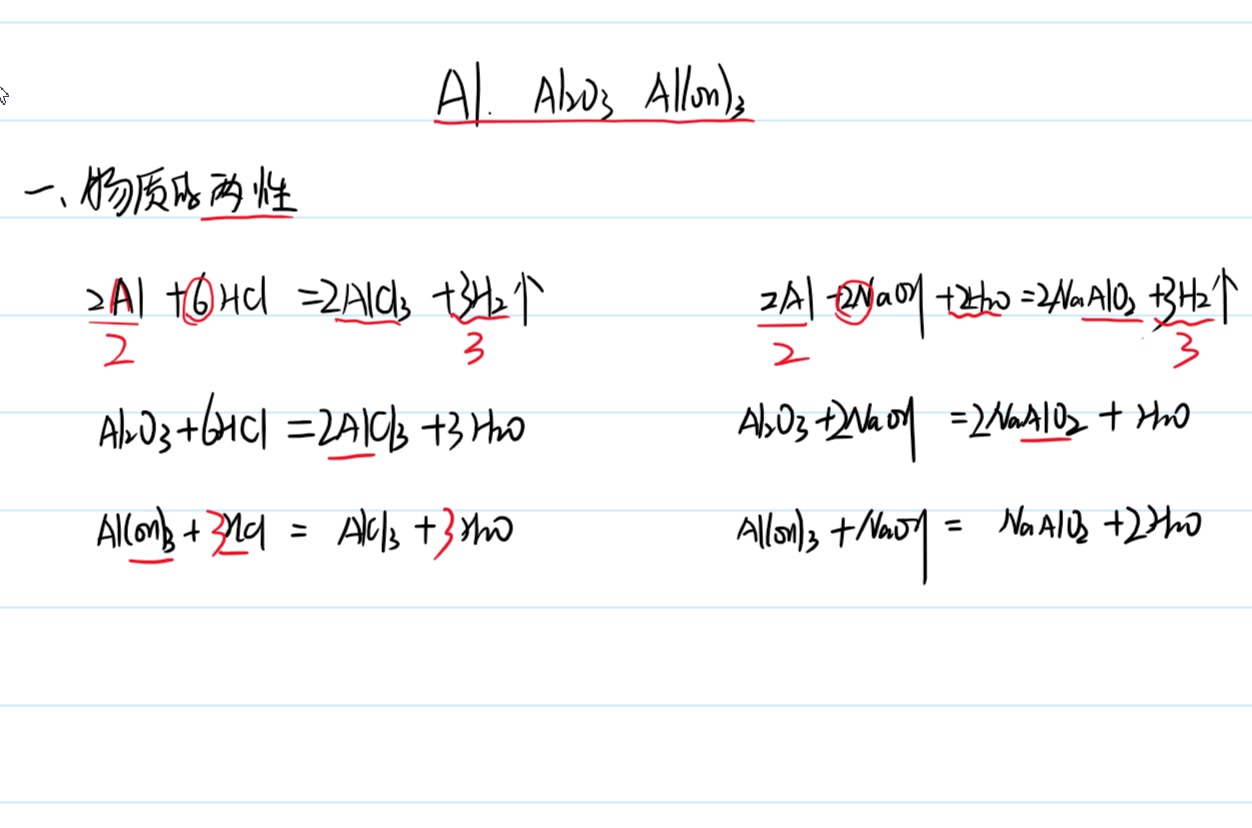 Al. Al₂O₃ Al(OH)₃
一、物质的两性
2Al + 6HCl = 2AlCl₃ + 3H₂↑ 2Al + 2NaOH + 2H₂O = 2NaAlO₂ + 3H₂↑
2 3 2 3
Al₂O₃ + 6HCl = 2AlCl₃ + 3H₂O Al₂O₃ + 2NaOH = 2NaAlO₂ + H₂O
Al(OH)₃ + 3HCl = AlCl₃ + 3H₂O Al(OH)₃ + NaOH = NaAlO₂ + 2H₂O